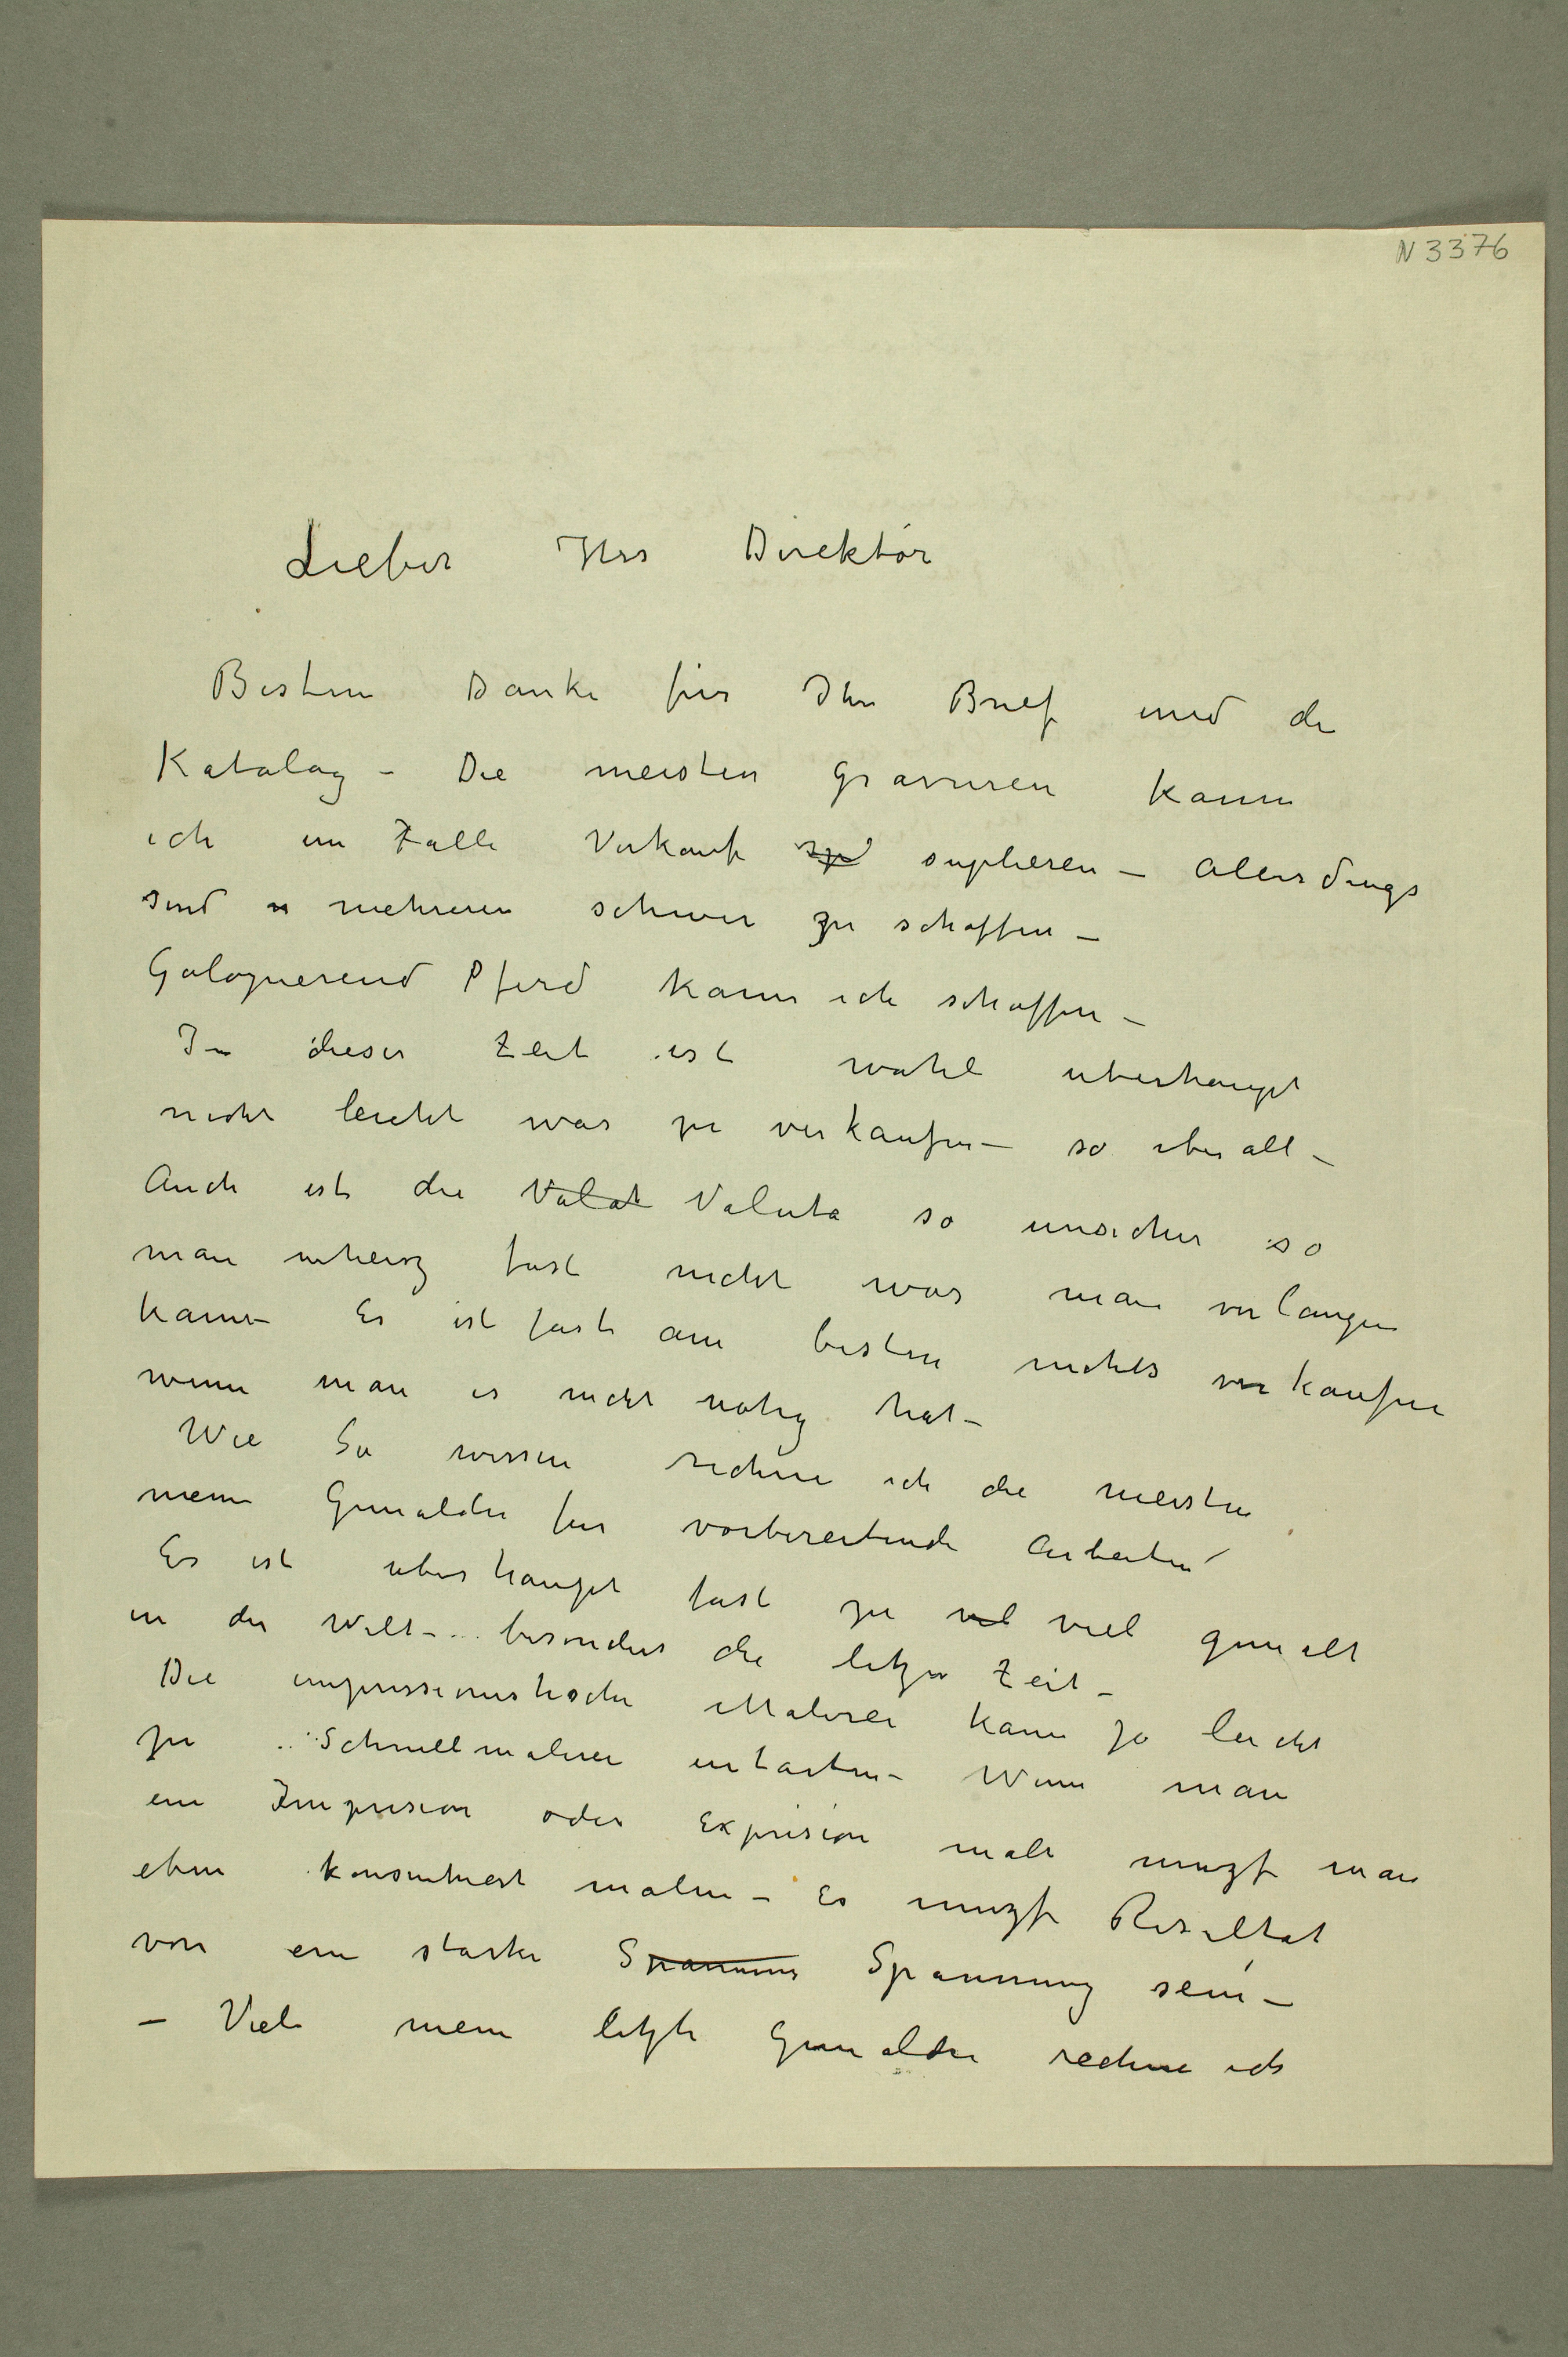 N 3376
Lieber Herr Direktör
Besten Danke für Ihre Brief und die
Katalog – Die meisten Gravuren kann
ich im Falle Verkauf suplieren – Alerdings
sind mehreren schwer zu schaffen –
Galopierend Pferd kann ich schaffen –
In dieser Zeit ist wohl uberhaupt
nicht leicht was zu verkaufen – so uberall –
Auch ist die Valut Valuta so unsicher so
man fast nicht was man verlangen
kann – Es ist fast am besten nichts verkaufen
wenn man es nicht nötig hat –
Wie Sie wissen rechne ich die meisten
meine Gemälder für vorbereitende Arbeiten
Es ist uberhaupt fast zu viel viel gemalt
in der Welt – besonders die letzen Zeit –
Die impressionistische Malerei kann ja leicht
zu Schnellmalerei entarten – Wenn man
ein Impresion oder Expresion malt muzs man
eben konsentriert malen – Es muzs Resultat
von eine starke Spannung Spannung sein –
– Viele meine letzte Gemälder rechne ich